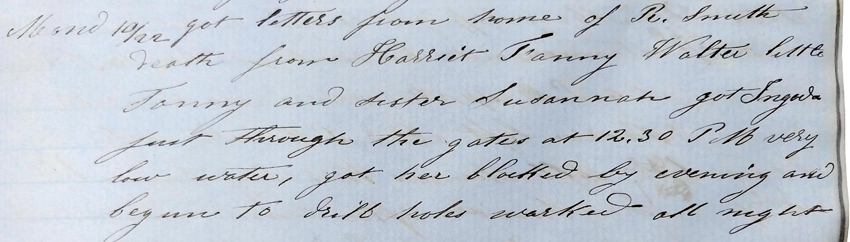 Mond 19/22 got letters from home of R. Smith
death from Harriet Fanny Walter little
Fanny and sister Susannah got Ingoda
just through the gates at 12.30 P.M very
low water, got her blocked by evening and
begun to drill holes worked all night